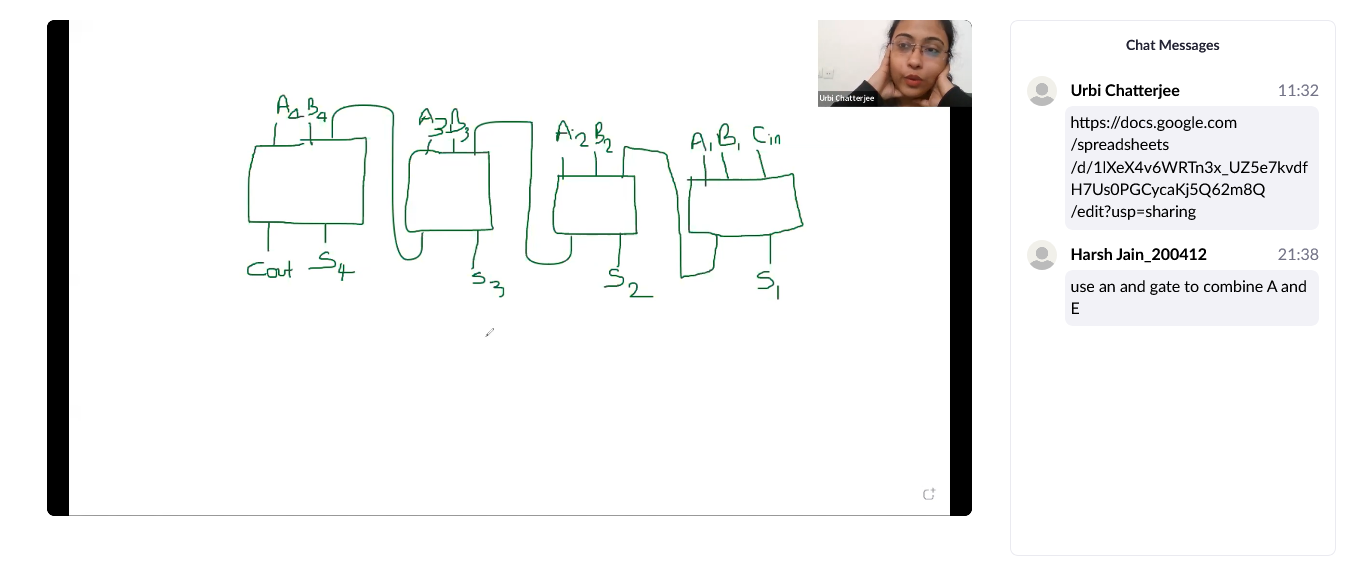 Urbi Chatterjee
A4 B4
A3 B3
A2 B2
A1 B1 Cin
Cout S4
S3
S2
S1
Chat Messages
Urbi Chatterjee 11:32
https://docs.google.com
/spreadsheets
/d/1lXeX4v6WRTn3x_UZ5e7kvdf
H7Us0PGCycaKj5Q62m8Q
/edit?usp=sharing
Harsh Jain_200412 21:38
use an and gate to combine A and
E